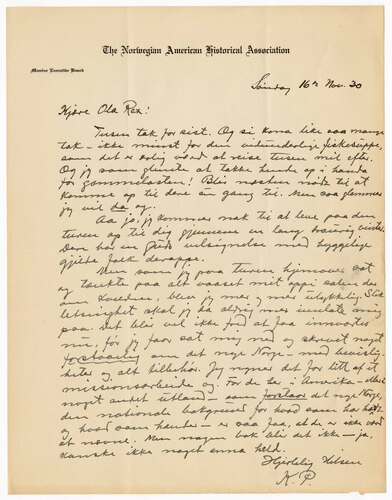 The Norwegian American Historical Association
Member Executive Board
Søndag 16de Nov. 30
Kjære Ola Rex:
Tusen tak for sist. Og si kona like saa mange
tak – ikke minst for den vidunderlige fiskesuppe,
som det er ærlig værd at reise tusen mil efter.
Og jeg som glemte at takke hende og i haanda
for gammelosten! Blir næsten nødt til at
komme op til dere en gang til. Men saa glemmer
jeg vel da og.
Aa jo, jeg kommer nok til at leve paa den
turen op til dig gjennem en lang traurig vinter.
Dere har en Guds velsignelse med hyggelige
gjilde folk deroppe.
Men som jeg paa turen hjemover sat og
tænkte paa alt vaaset mit oppi salen der
om kvelden, blev jeg mer og mer ulykkelig. Slik
letsindighet skal jeg ha aldrig mer
paa. Det blir vel ikke fred at faa
nu, før jeg faar sat mig ned og skrevet noget
forstaaelig om det nye Norge – med
heter og alt tilbehør. Jeg synes det for litt af it
missionsarbeide og. For de her i Amerika – eller
noget andet utland – som forstaar det nye Norge,
den nationale bakgrund for hvad som har hændt
og hvad som hender – er saa faa, at de er ikke værd
at nævne. Men nogen bok blir det ikke – ja,
kanske ikke noget anna held.
Hjertelig hilsen
K. P.